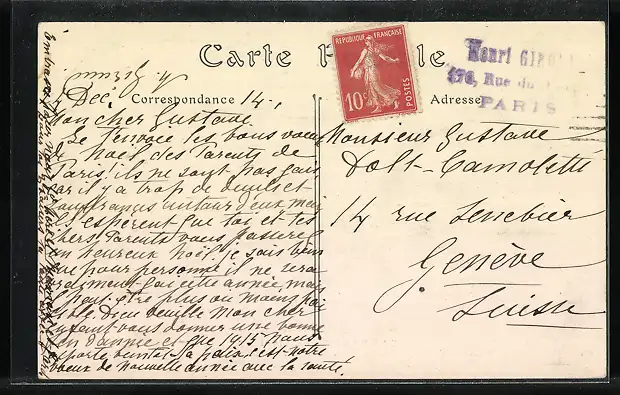 Carte Postale
REPUBLIQUE FRANÇAISE
10c
POSTES
Henri
Rue du
PARIS
Correspondance
Adresse
Dec. 14.
Mon cher Gustave
Je t'envoie les bons voeux
de Noël des Parents de
Paris, ils ne sont pas gais
car il y a trop de deuils et
souffrances autour d'eux mais
ils esperent que toi et tes
chers Parents vous passerez
un heureux Noël. Je sais bien
que pour personne il ne sera
vraiment gai cette année mais
il peut être plus ou moins
Dieu veuille mon cher
enfant vous donner une bonne
fin d'année et que 1915 nous
apporte bientôt la paix, c'est notre
voeux de nouvelle année avec la santé.
Monsieur Gustave
Dolt-Camoletti
14 rue Senebier
Genève
Suisse